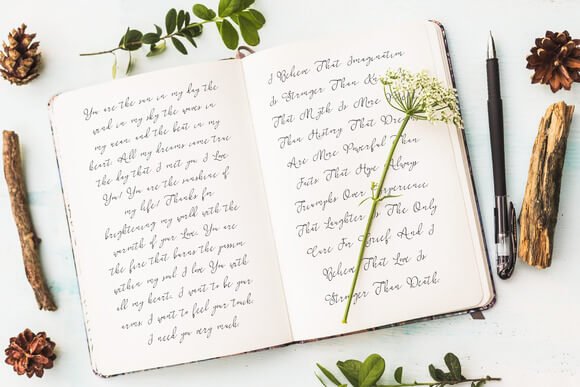 You are the sun in my day the
wind in my sky the waves in
my ocean and the beat in my
heart. All my dreams came true
the day that I met you I Love
You! You are the sunshine of
my life! Thanks for
brightening my world with the
warmth of your Love. You are
the fire that burns the passion
within my soul I love You with
all my heart. I want to be your
arms. I want to feel your touch.
I need you very much.
I Believe That Imagination
Is Stronger Than
That Myth Is More
Than History That
Are More Powerful Than
Facts That Hope Always
Triumphs Over Experience
That Laughter Is The Only
Cure For Grief And I
Believe That Love Is
Stronger Than Death.